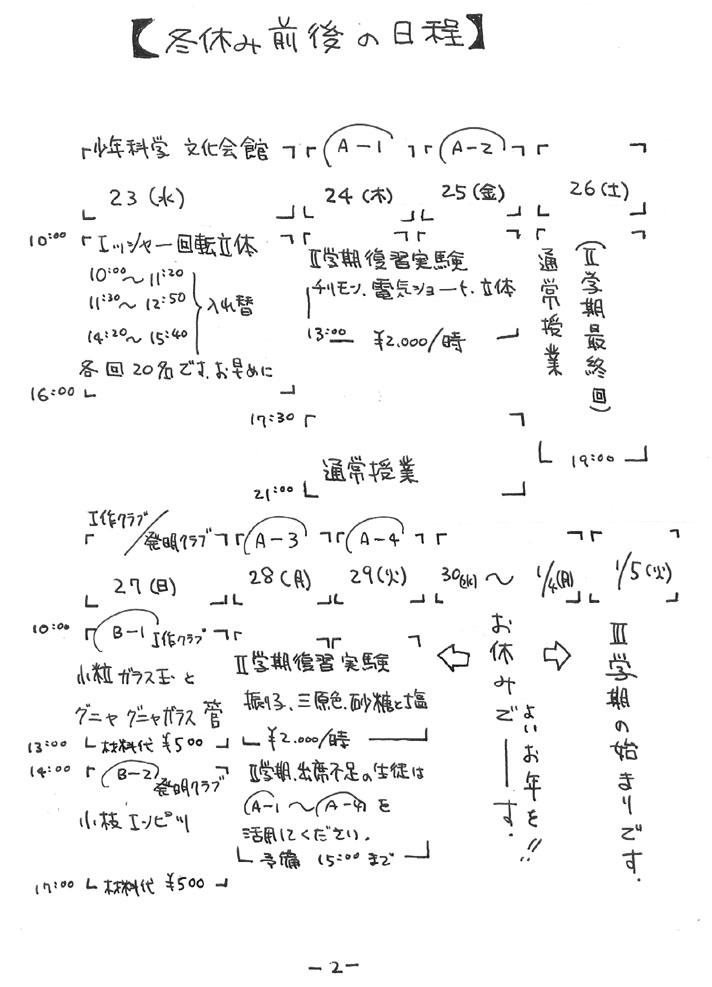 【冬休み前後の日程】
少年科学 文化会館
A-1
A-2
23(水)
24(木)
25(金)
26(土)
10:00
エッシャー回転立体
10:00～11:20
11:30～12:50
14:20～15:40
入れ替
各回20名です.お早めに
16:00
II学期復習実験
チリモン.電気ショート.立体
13:00
¥2.000/時
通常授業
(II学期最終回)
19:00
17:30
通常授業
21:00
工作クラブ/発明クラブ
A-3
A-4
27(日)
28(月)
29(火)
30(水)～1/4(月)
1/5(火)
10:00
B-1 工作クラブ
小粒ガラス玉と
グニャグニャガラス管
13:00
材料代¥500
14:00
B-2 発明クラブ
小枝エンピツ
17:00
材料代¥500
II学期復習実験
振り子.三原色.砂糖と塩
¥2.000/時
II学期.出席不足の生徒は
A-1～A-4を
活用してください.
予備 15:00まで
お休みで――す.
よいお年を!!
III学期の始まりです.
-2-